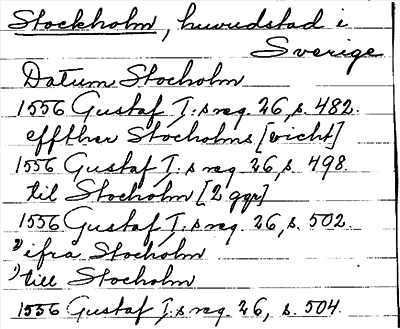 Stockholm, huvudstad i
Sverige
Datum Stocholm
1556 Gustaf I:s reg. 26, s. 482.
effther Stocholms [vicht]
1556 Gustaf I:s reg. 26, s. 498.
til Stocholm [2 ggr]
1556 Gustaf I:s reg. 26, s. 502.
ifrå Stocholm
till Stocholm
1556 Gustaf I:s reg. 26, s. 504.